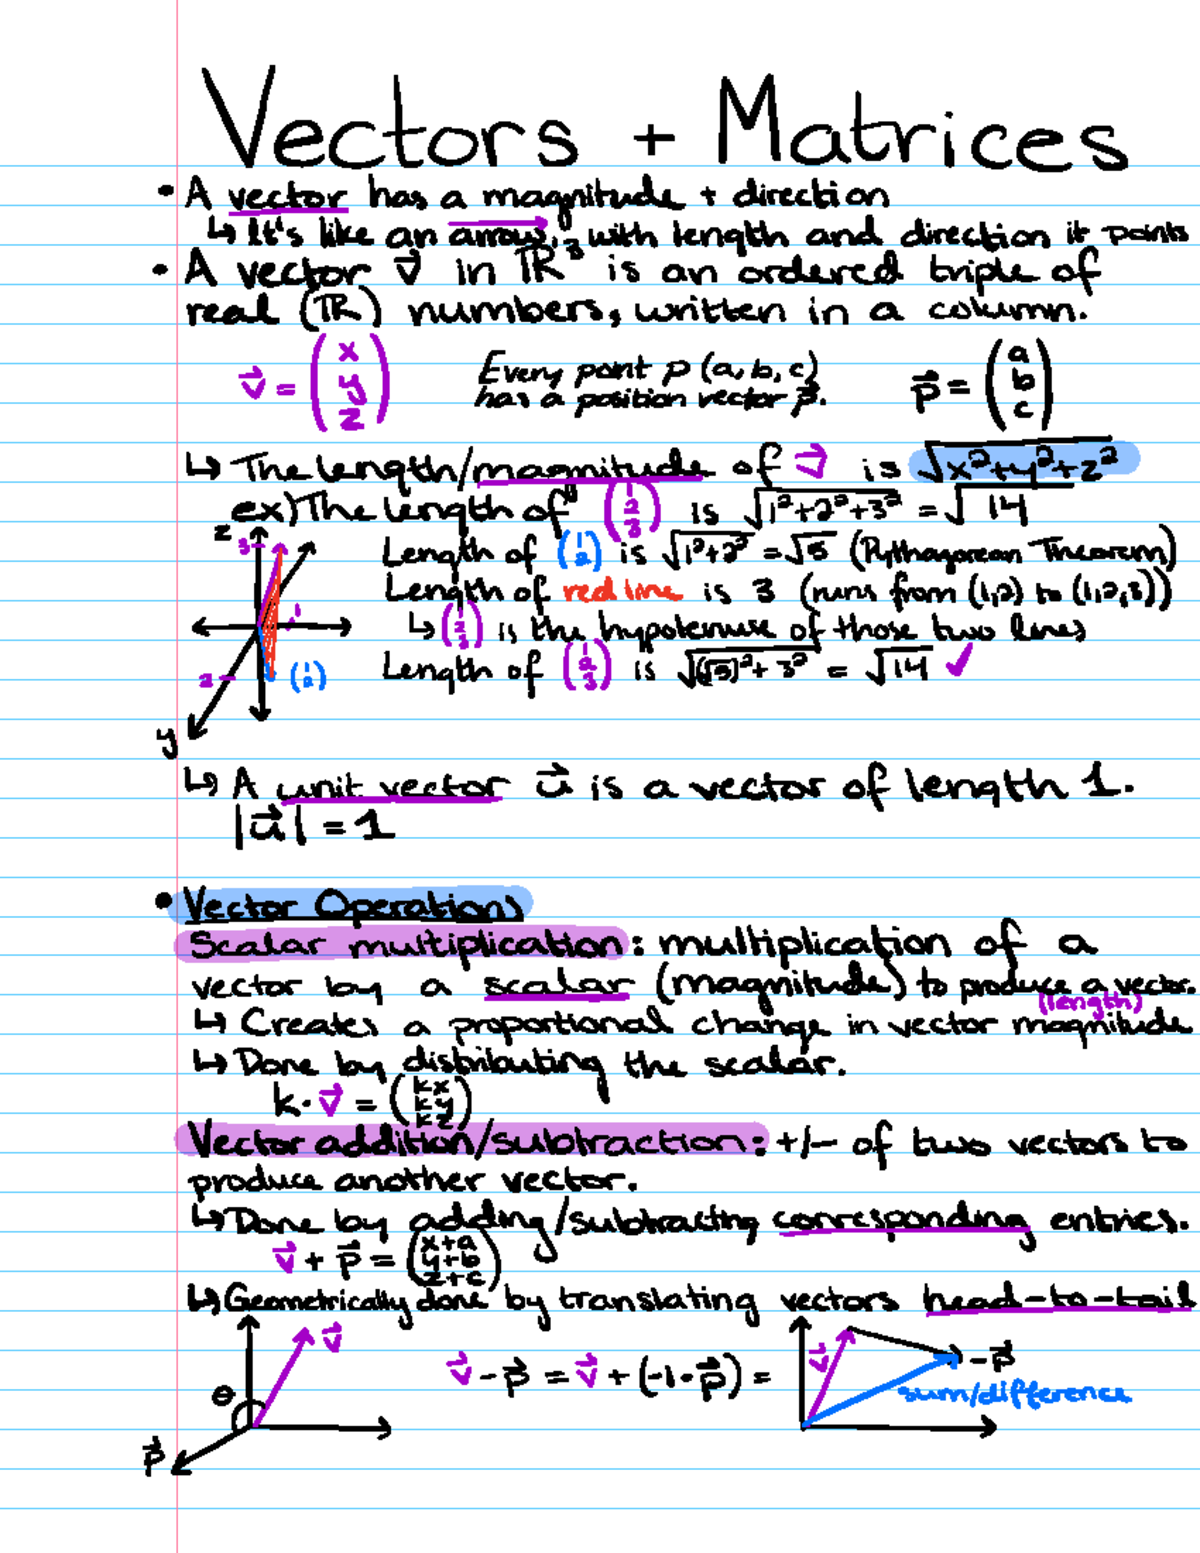 Vectors + Matrices
• A vector has a magnitude + direction
↳ It's like an arrow, with length and direction it points
• A vector v⃗ in ℝ³ is an ordered triple of
real (ℝ) numbers, written in a column.
v⃗ = (x y z) Every point p (a, b, c) has a position vector p⃗. p⃗ = (a b c)
↳ The length/magnitude of v⃗ is √x²+y²+z²
ex) The length of (1 2 3) is √1²+2²+3² = √14
Length of (1 2) is √1²+2² = √5 (Pythagorean Theorem)
Length of red line is 3 (runs from (1,2) to (1,2,3))
↳ (1 2 3) is the hypotenuse of those two lines
Length of (1 2 3) is √(√5)²+3² = √14 ✓
z
3
1
2
(1 2)
y
↳ A unit vector u⃗ is a vector of length 1.
|u⃗| = 1
• Vector Operations
Scalar multiplication: multiplication of a
vector by a scalar (magnitude) to produce a vector.
(length)
↳ Creates a proportional change in vector magnitude
↳ Done by distributing the scalar.
k · v⃗ = (kx ky kz)
Vector addition/subtraction: +/- of two vectors to
produce another vector.
↳ Done by adding/subtracting corresponding entries.
v⃗ + p⃗ = (x+a y+b z+c)
↳ Geometrically done by translating vectors head-to-tail
v⃗
θ
p⃗
v⃗ - p⃗ = v⃗ + (-1·p⃗) =
v⃗
-p⃗
sum/difference